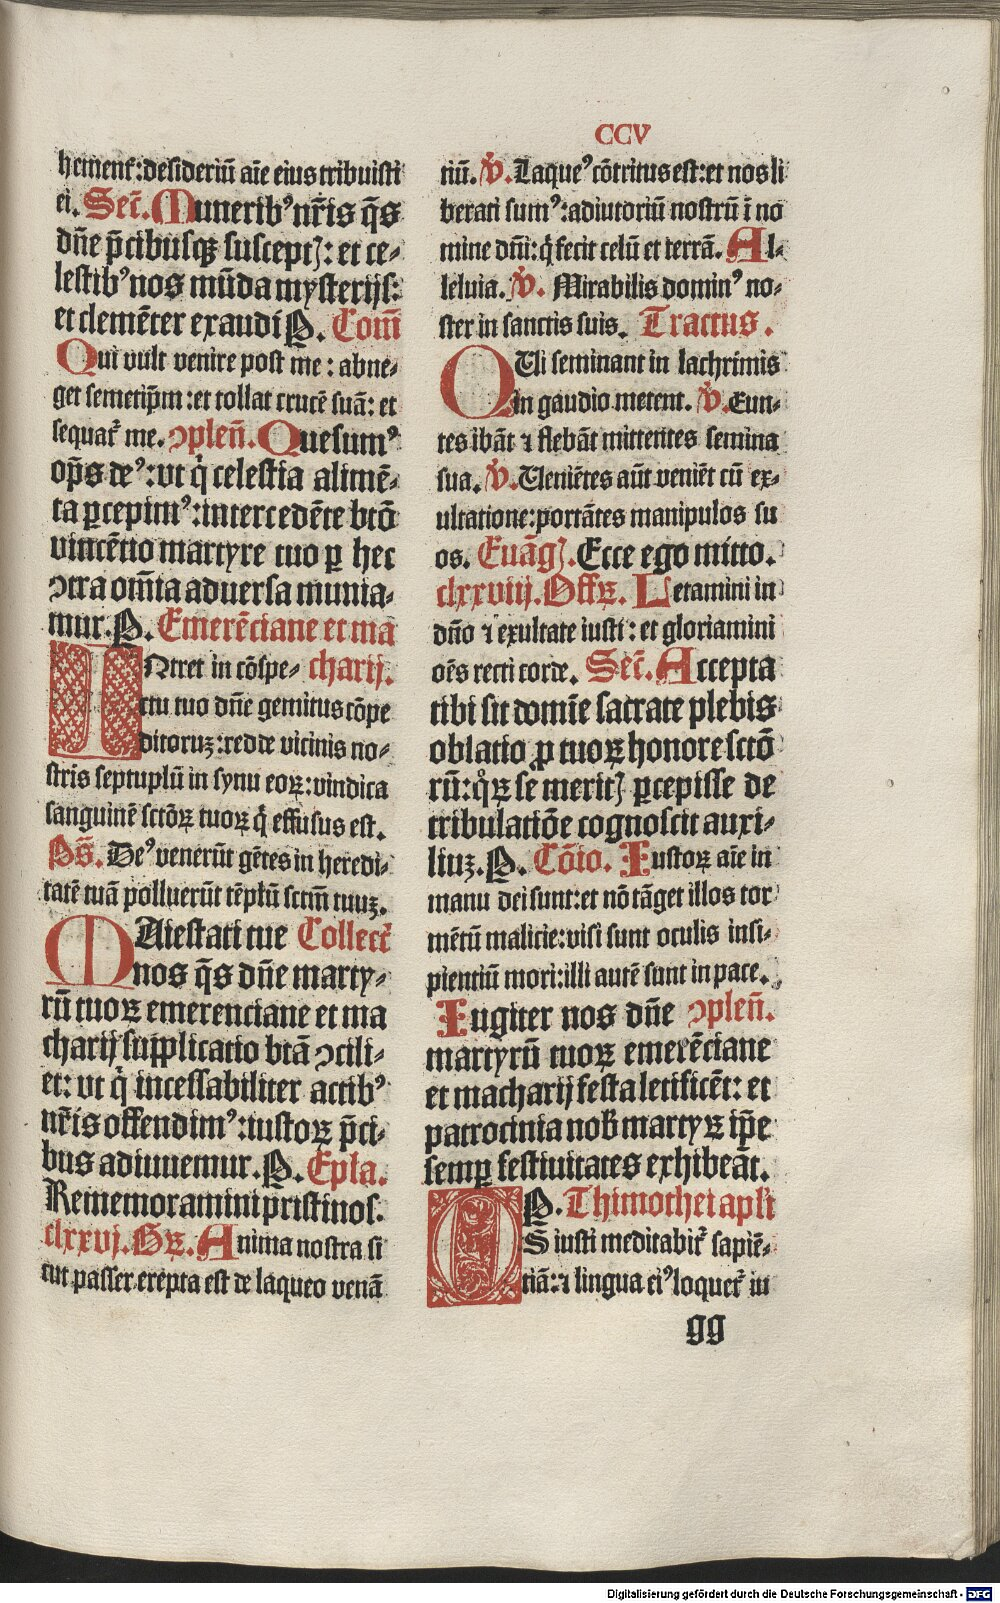 CCV
hement᷑: desideriū aīe eius tribuisti
ei. Secr̄. Munerib⁹ nr̄is q̄s
dn̄e p̄cibusqꝫ suscept͛: et ce-
lestib⁹ nos mūda mysterijs:
et clemēter exaudi P. Com̄
Qui vult venire post me: abne-
get semetip̄m: et tollat crucē suā: et
sequat᷑ me. ↄplen̄. Quesum⁹
op̄s de⁹: vt q̇ celestia alimē-
ta ꝑcepim⁹: intercedēte btō
vincētio martyre tuo ꝑ hec
ↄtra om̄ia aduersa munia-
mur. P. Emerēciane et ma
INtret in cōspe- charij.
ctu tuo dn̄e gemitus cōpe
ditoruꝫ: redde vicinis no-
stris septuplū in synu eoꝝ: vindica
sanguinē sctōꝝ tuoꝝ q̇ effusus est.
Ps̄. De⁹ venerūt gētes in heredi-
tatē tuā polluerūt tēplū sctm̄ tuuꝫ.
MAiestati tue Collect᷑
nos q̄s dn̄e marty-
rū tuoꝝ emerenciane et ma
charij supplicatio btā ↄcili-
et: vt q̇ incessabiliter actib⁹
nr̄is offendim⁹: iustoꝝ p̄ci-
bus adiuuemur. P. Ep̄la.
Rememoramini pristinos.
clxxvj. Gꝝ. Anima nostra si
cut passer erepta est de laqueo venā
tiū. V̇. Laque⁹ cōtritus est: et nos li
berati sum⁹: adiutoriū nostrū ī no
mine dn̄i: q̇ fecit celū et terrā. Al-
leluia. V̇. Mirabilis domin⁹ no-
ster in sanctis suis. Tractus.
QUi seminant in lachrimis
in gaudio metent. V̇. Eun-
tes ibāt ⁊ flebāt mittentes semina
sua. V̇. Ueniētes aūt veniēt cū ex-
ultatione: portātes manipulos su
os. Euāg͛. Ecce ego mitto.
clxxviij. Offꝝ. Letamini in
dn̄o ⁊ exultate iusti: et gloriamini
oēs recti corde. Secr̄. Accepta
tibi sit domīe sacrate plebis
oblatio ꝓ tuoꝝ honore sctō
rū: qͦꝝ se merit͛ ꝑcepisse de
tribulatiōe cognoscit auxi-
liuꝫ. P. Cōio. Iustoꝝ aīe in
manu dei sunt: et nō tāget illos tor
mētū malicie: visi sunt oculis insi-
pientiū mori: illi autē sunt in pace.
Iugiter nos dn̄e ↄplen̄.
martyrū tuoꝝ emerēciane
et macharij festa letificēt: et
patrocinia nob̄ martyꝝ ip̄e
semꝑ festiuitates exhibeāt.
P. Thimothei apl̄i
OS iusti meditabit᷑ sapiē-
tiā: ⁊ lingua ei⁹ loquet᷑ iu
gg
Digitalisierung gefördert durch die Deutsche Forschungsgemeinschaft - DFG